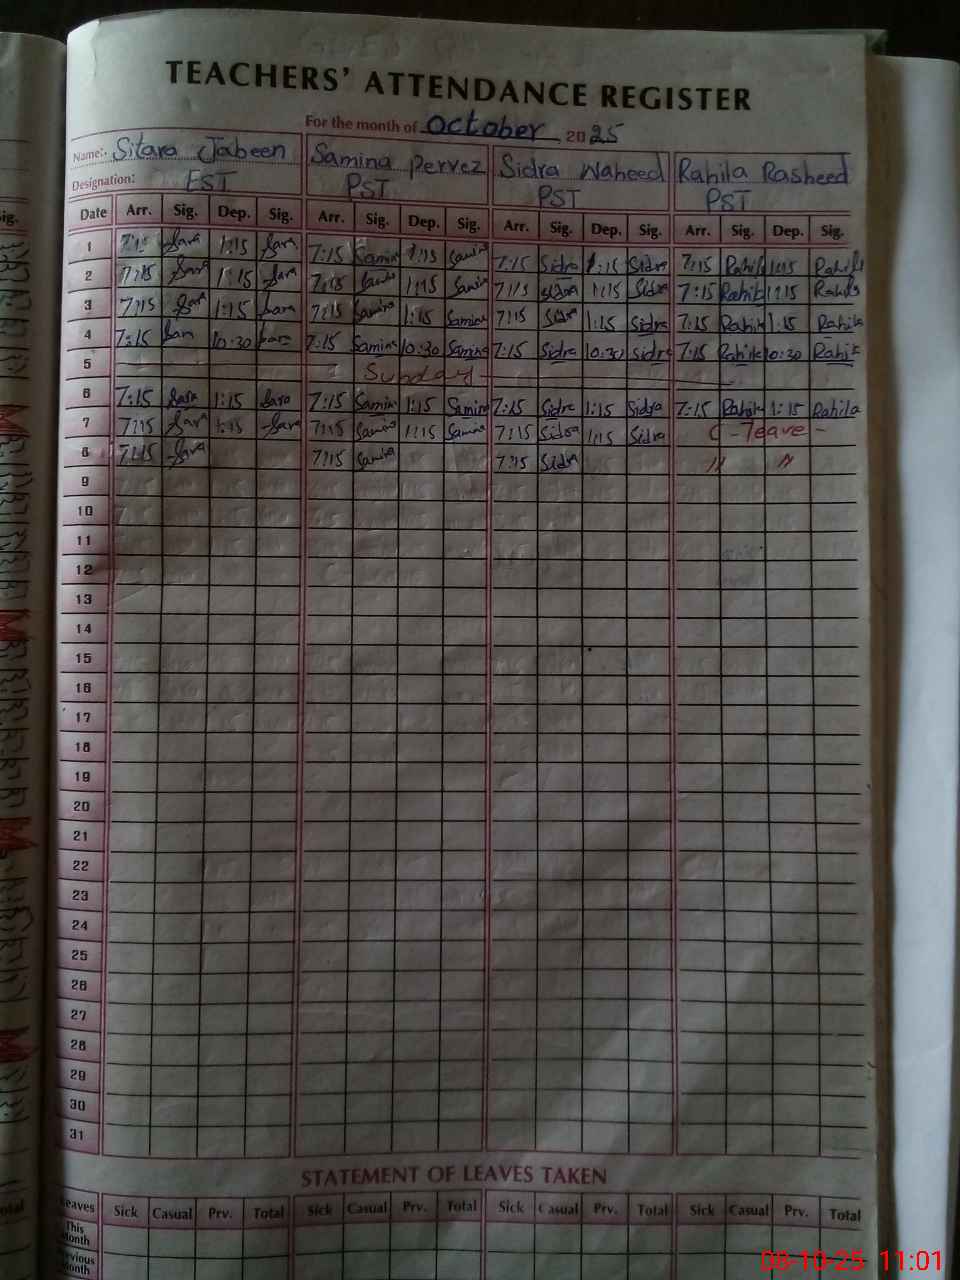 TEACHERS' ATTENDANCE REGISTER
For the month of October 2025
Name:- Sitara Jabeen Samina Pervez Sidra Waheed Rahila Rasheed
Designation: EST PST PST PST
Date Arr. Sig. Dep. Sig. Arr. Sig. Dep. Sig. Arr. Sig. Dep. Sig. Arr. Sig. Dep. Sig.
1 7:15 Sara 1:15 Sara 7:15 Samina 1:15 Samina 7:15 Sidra 1:15 Sidra 7:15 Rahila 1:15 Rahila
2 7:15 Sara 1:15 Sara 7:15 Samina 1:15 Samina 7:15 Sidra 1:15 Sidra 7:15 Rahila 1:15 Rahila
3 7:15 Sara 1:15 Sara 7:15 Samina 1:15 Samina 7:15 Sidra 1:15 Sidra 7:15 Rahila 1:15 Rahila
4 7:15 Sara 10:30 Sara 7:15 Samina 10:30 Samina 7:15 Sidra 10:30 Sidra 7:15 Rahila 10:30 Rahila
5 Sunday
6 7:15 Sara 1:15 Sara 7:15 Samina 1:15 Samina 7:15 Sidra 1:15 Sidra 7:15 Rahila 1:15 Rahila
7 7:15 Sara 1:15 Sara 7:15 Samina 1:15 Samina 7:15 Sidra 1:15 Sidra C - leave -
8 7:15 Sara 7:15 Samina 7:15 Sidra " "
9
10
11
12
13
14
15
16
17
18
19
20
21
22
23
24
25
26
27
28
29
30
31
STATEMENT OF LEAVES TAKEN
Leaves Sick Casual Prv. Total Sick Casual Prv. Total Sick Casual Prv. Total Sick Casual Prv. Total
This Month
Previous Month
08-10-25 11:01